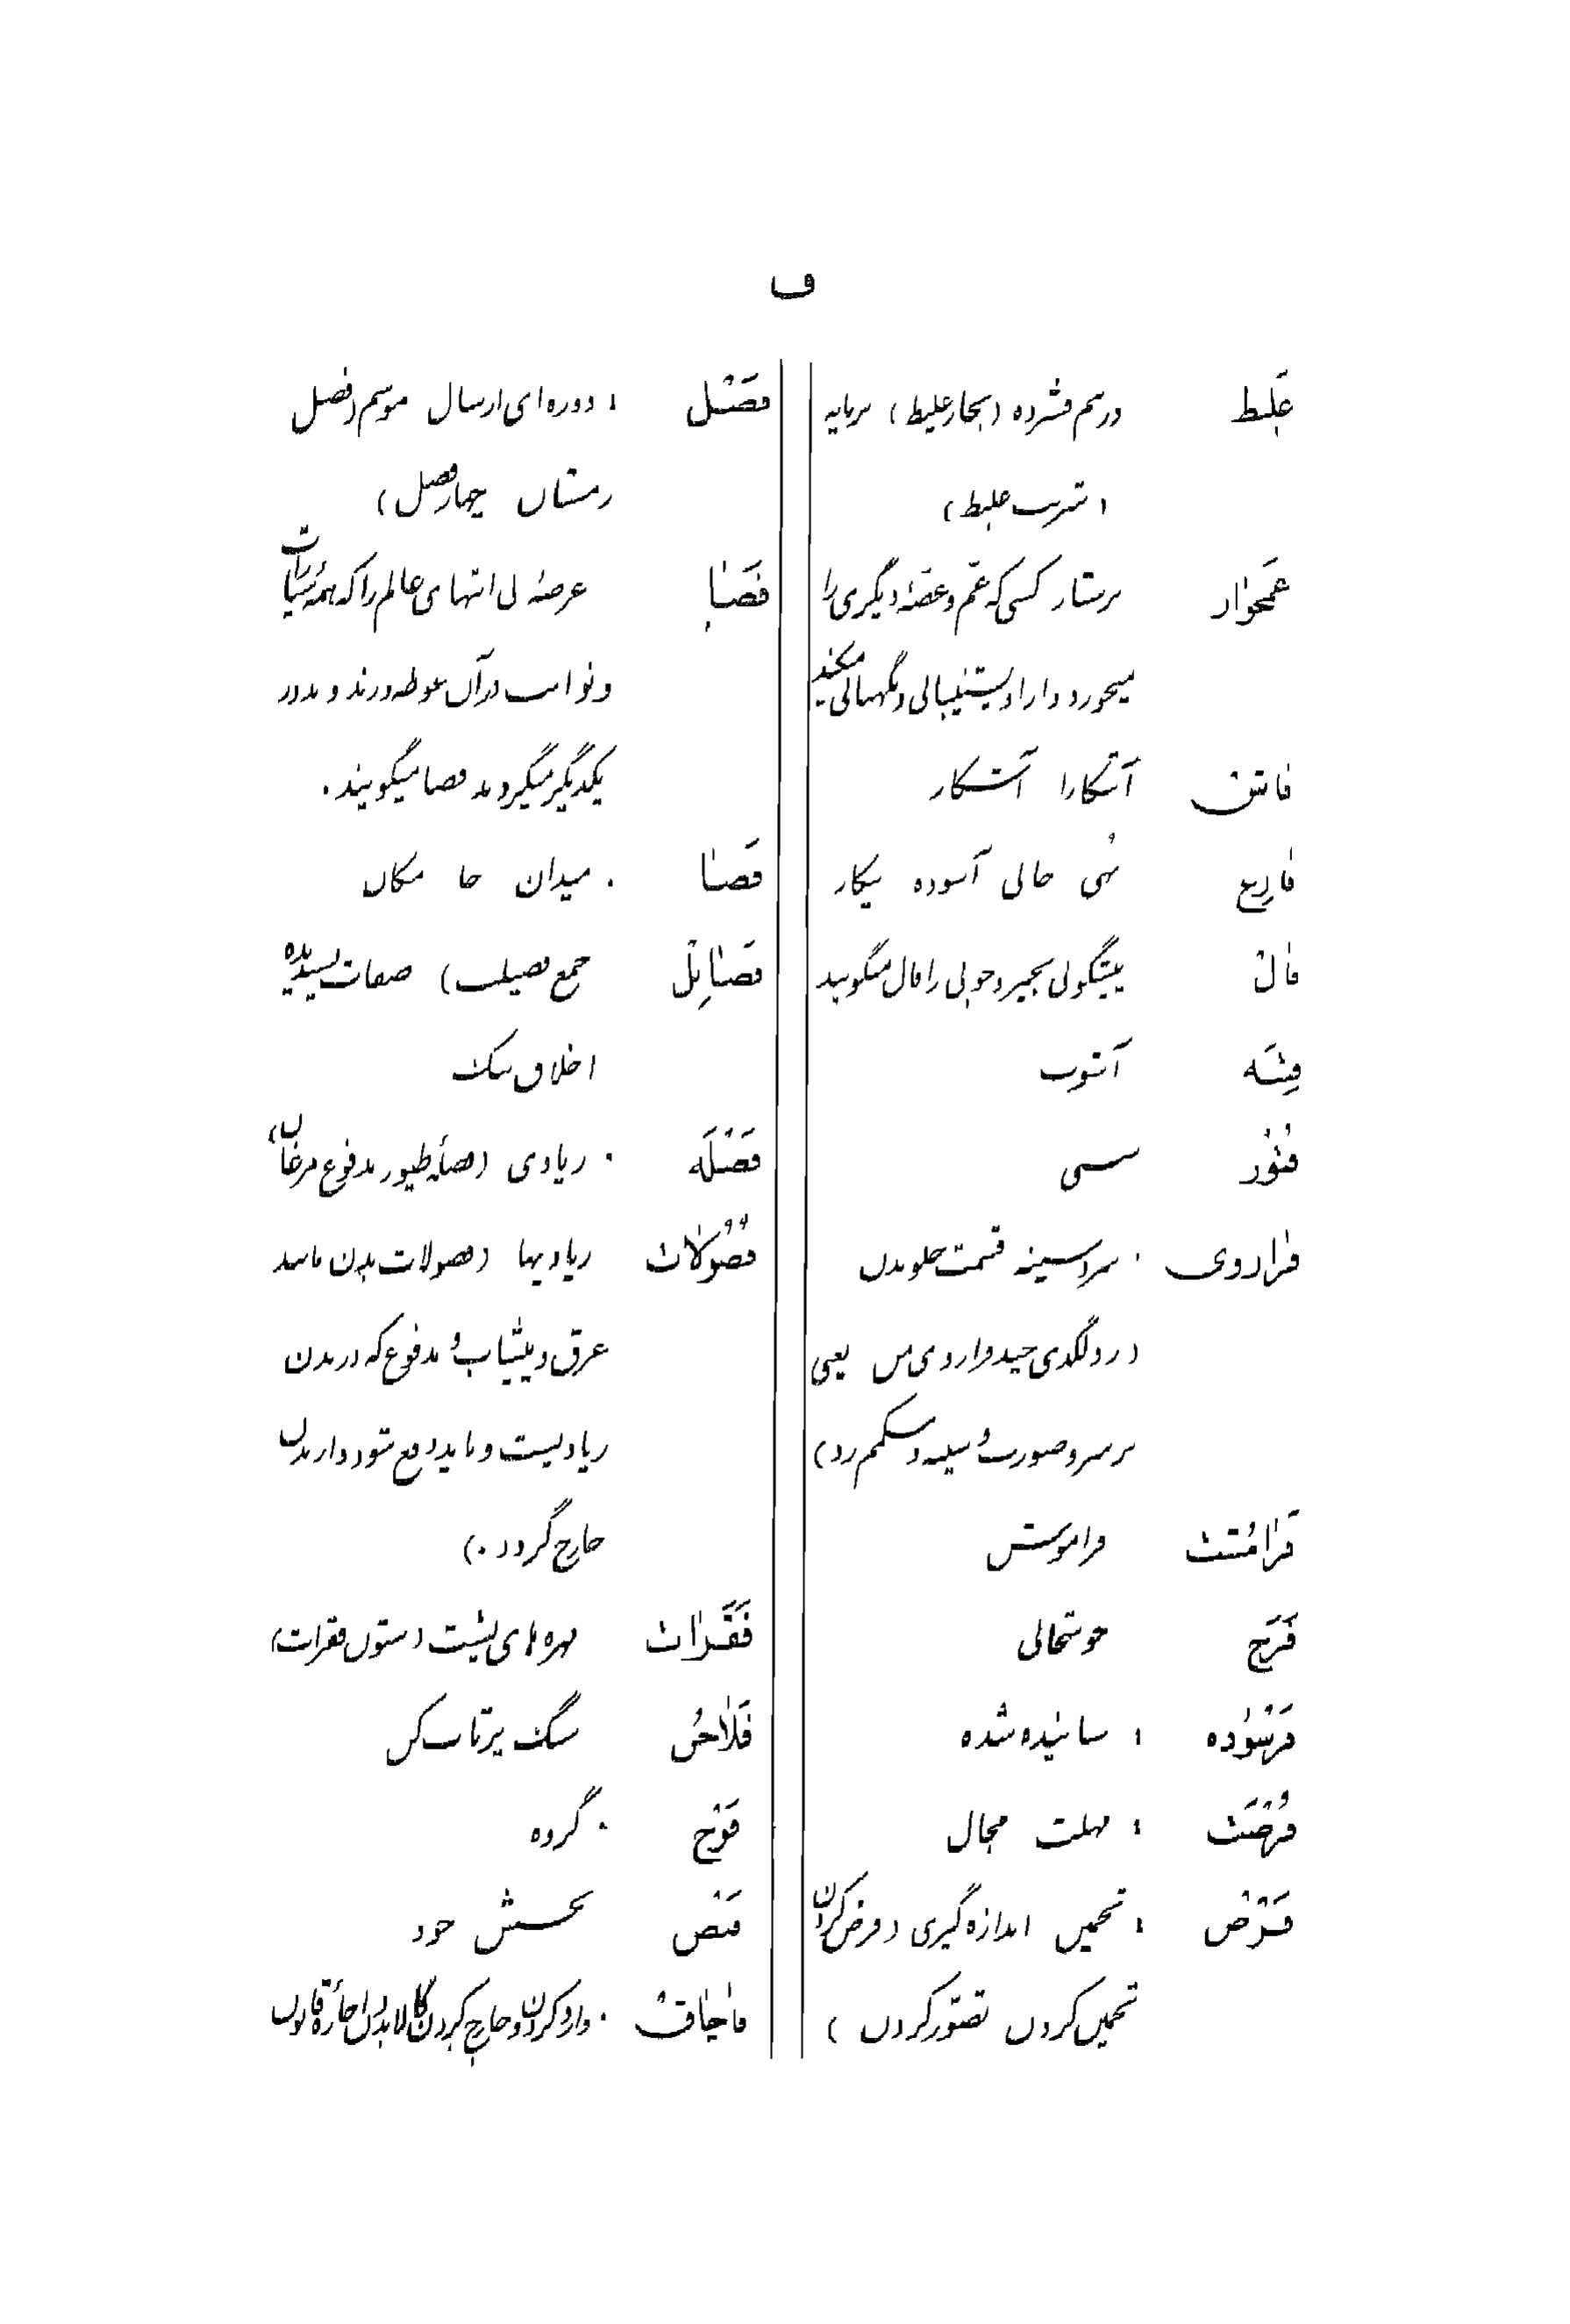 ف
غَلیظ درهم فشرده (بخار غلیظ) پرمایه
(شربت غلیظ)
غَمخوٰار پرستار کسی که غم و غصّهٔ دیگری را
میخورد و او را پشتیبانی و نگهبانی میکند
فاش آشکارا آشکار
فارِغ تُهی خالی آسوده بیکار
فالْ پیشگوئی بخیر و خوبی را فال میگویند
فِتنَه آشوب
فُتُوْر سستی
فرٰاروی سر و سینه قسمت جلو بدن
(زد لگدی چند فراروی من یعنی
بر سر و صورت و سینه و شکمم زد)
فَرٰامُشْت فراموش
فَرَح خوشحالی
فَرْسُوْده : سائیده شده
فُرْصَت : مهلت مجال
فَرْض : تخمین اندازه گیری (فرض کردن
تخمین کردن تصوّر کردن )
فَصْل : دوره ای از سال موسم (فصل
زمستان چهار فصل)
فَضٰا عرصهٔ بی انتهای عالم را که همهٔ سیارات
و ثوابت در آن غوطه ورند و بدور
یکدیگر میگردند فضا میگویند .
فَضٰا . میدان جا مکان
فَضٰائِلْ جمع فضیلت) صفات پسندیده
اخلاق نیک
فَضْلَه . زیادی (فضلهٔ طیور مدفوع مرغان)
فُضُولاٰت زیادیها (فضولات بدن مانند
عرق و پیشاب و مدفوع که در بدن
زیادیست و باید دفع شود و از بدن
خارج گردد .)
فَقَرٰات مهره های پشت (ستون فقرات)
فَلاٰخُن سنگ پرتاب کن
فَوْج . گروه
فَیْض بخشش جود
قاٰچاٰقْ . وارد کردن و خارج کردن کالا بدون اجازهٔ قانون